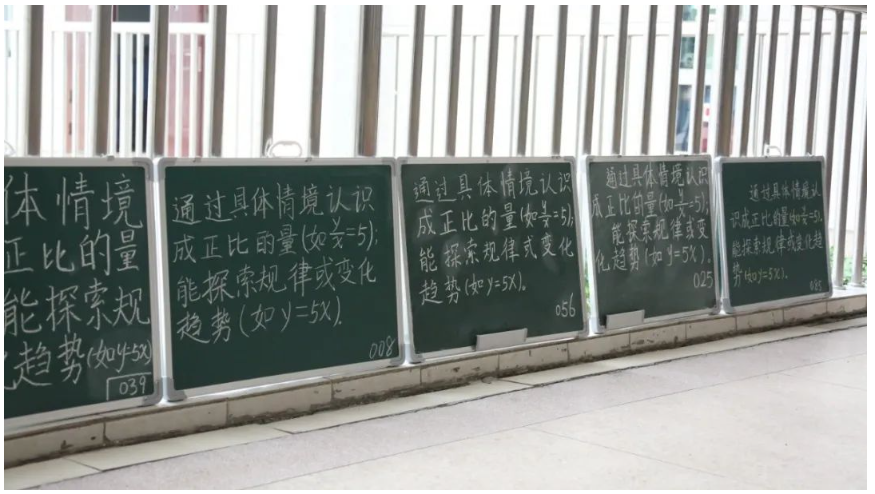 体情境
正比的量
能探索规
趋势(如y=5x)
039
通过具体情境认识
成正比的量(如y/x=5);
能探索规律或变化
趋势(如y=5x)。
008
通过具体情境认识
成正比的量(如y/x=5);
能探索规律或变化
趋势(如y=5x)。
056
通过具体情境认识
成正比的量(如y/x=5);
能探索规律或变
化趋势(如y=5x)。
025
通过具体情境认
识成正比的量(如y/x=5),
能探索规律或变化趋
势(如y=5x)。
085